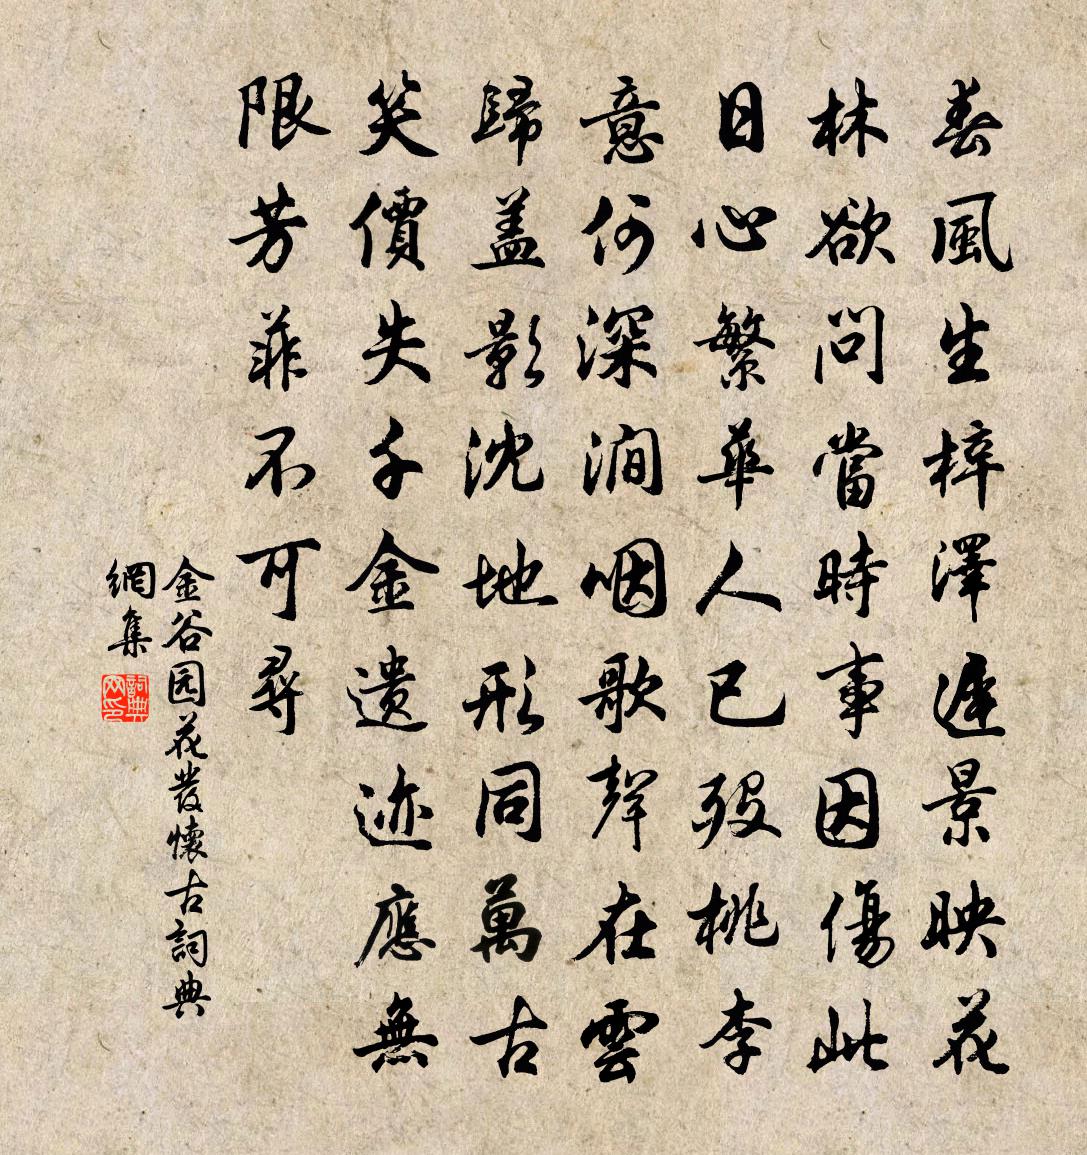 春風生梓澤遲景映花
林欲問當時事因傷此
日心繁華人已歿桃李
意何深澗咽歌聲在雲
歸蓋影沈地形同萬古
笑價失千金遗迹應無
限芳菲不可尋
金谷园花發懷古詞典
網集
詞典
网印